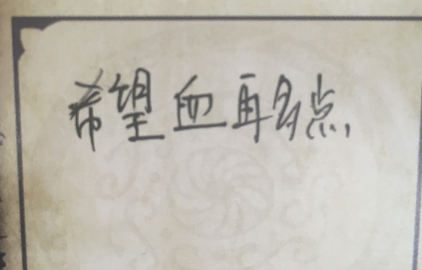 希望血再多点